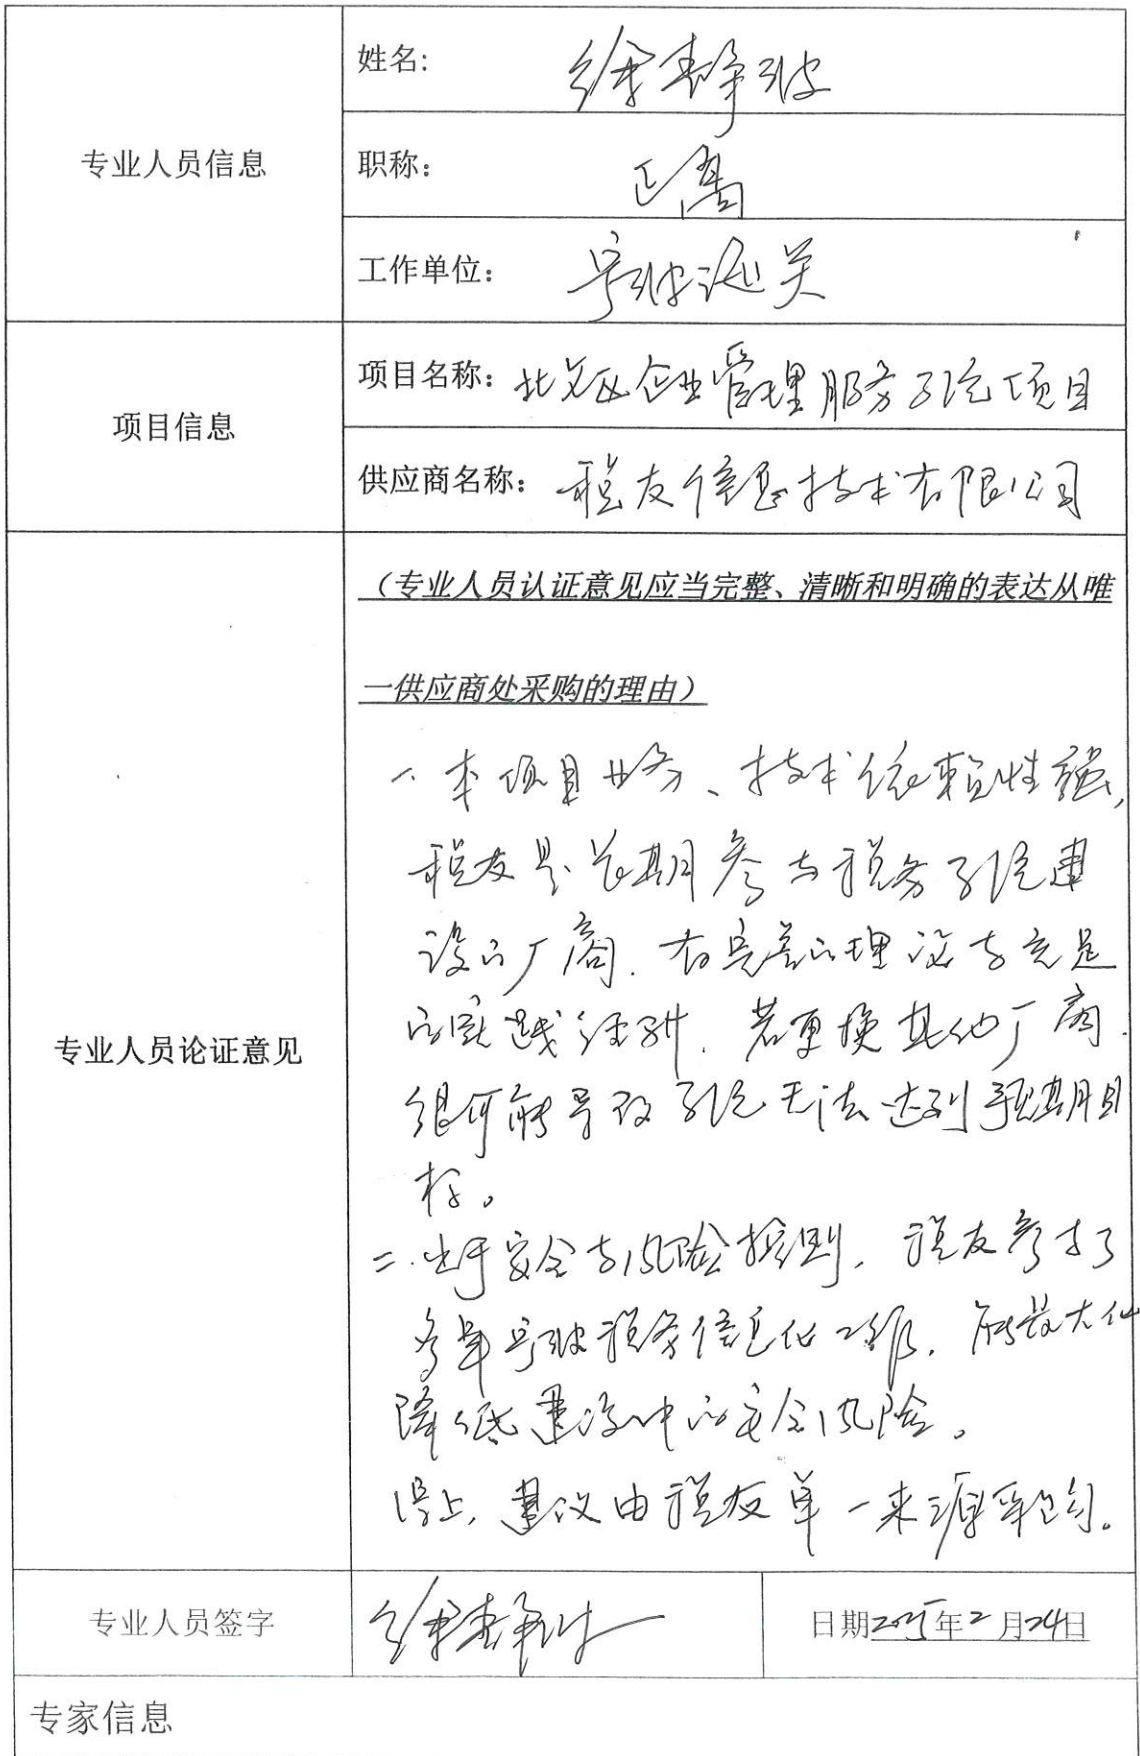 专业人员信息
姓名: 徐静波
职称: 正高
工作单位: 宁波海关
项目信息
项目名称: 北仑区企业管理服务系统项目
供应商名称: 税友信息技术有限公司
专业人员论证意见
（专业人员认证意见应当完整、清晰和明确的表达从唯
一供应商处采购的理由）
一、本项目业务、技术依赖性强,
税友是长期参与税务系统建
设的厂商. 有完善的理论与充足
的实践经验. 若更换其他厂商.
很可能导致系统无法达到预期目
标。
二. 出于安全与风险控制. 税友参与了
多年宁波税务信息化工作. 能最大化
降低建设中的安全风险。
综上. 建议由税友单一来源采购。
专业人员签字 徐静波 日期2025年2月24日
专家信息